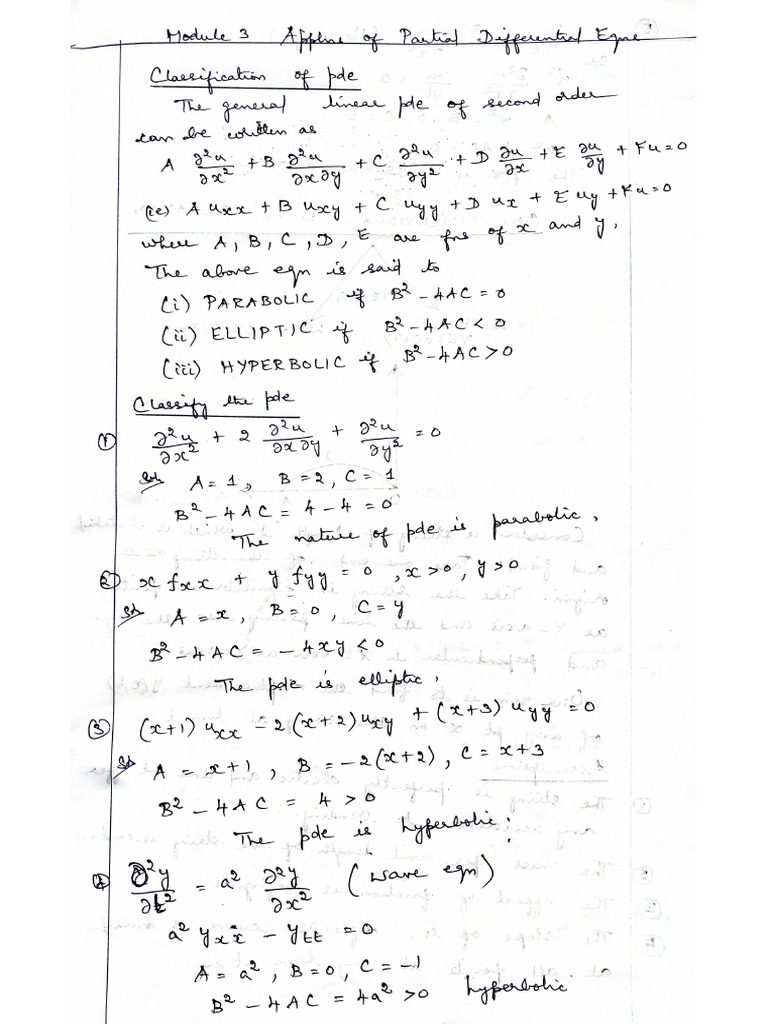 Module 3 Applns of Partial Differential Eqns
Classification of pde
The general linear pde of second order
can be written as
A ∂²u/∂x² + B ∂²u/∂x∂y + C ∂²u/∂y² + D ∂u/∂x + E ∂u/∂y + Fu = 0
(ie) A uxx + B uxy + C uyy + D ux + E uy + Fu = 0
where A, B, C, D, E are fns of x and y.
The above eqn is said to
(i) PARABOLIC if B² - 4AC = 0
(ii) ELLIPTIC if B² - 4AC < 0
(iii) HYPERBOLIC if B² - 4AC > 0
Classify the pde
① ∂²u/∂x² + 2 ∂²u/∂x∂y + ∂²u/∂y² = 0
Sol A = 1, B = 2, C = 1
B² - 4AC = 4 - 4 = 0
The nature of pde is parabolic.
② x fxx + y fyy = 0, x > 0, y > 0
Sol A = x, B = 0, C = y
B² - 4AC = - 4xy < 0
The pde is elliptic.
③ (x+1) uxx - 2(x+2) uxy + (x+3) uyy = 0
Sol A = x+1, B = -2(x+2), C = x+3
B² - 4AC = 4 > 0
The pde is hyperbolic.
④ ∂²y/∂t² = a² ∂²y/∂x² (wave eqn)
a² yxx - ytt = 0
A = a², B = 0, C = -1
B² - 4AC = 4a² > 0 hyperbolic